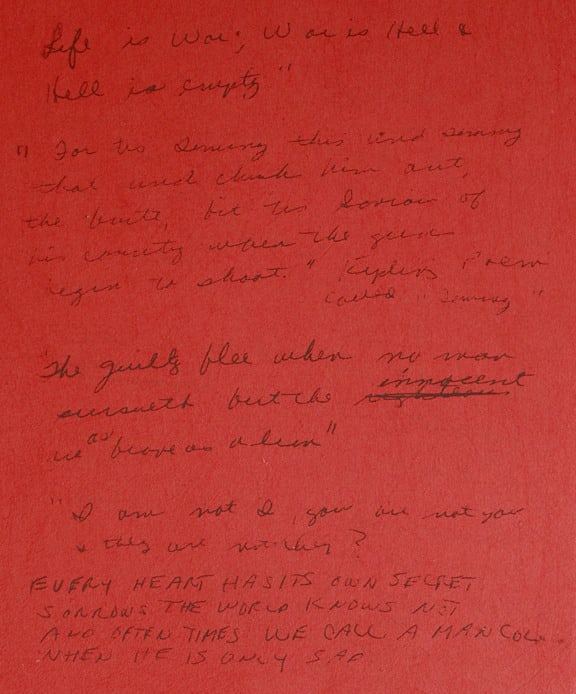 Life is War; War is Hell &
Hell is empty"
" For its Tommy this und Tommy
that und chuck him out,
the brute, but its Savior of
his country when the guns
begin to shoot." Kipling's Poem
called "Tommy"
The guilty flee when no man
pursueth but the innocent
as brave as a lion"
"I am not I, you are not you
& they are not they ?
EVERY HEART HAS ITS OWN SECRET
SORROWS THE WORLD KNOWS NOT
AND OFTEN TIMES WE CALL A MAN COLD
WHEN HE IS ONLY SAD